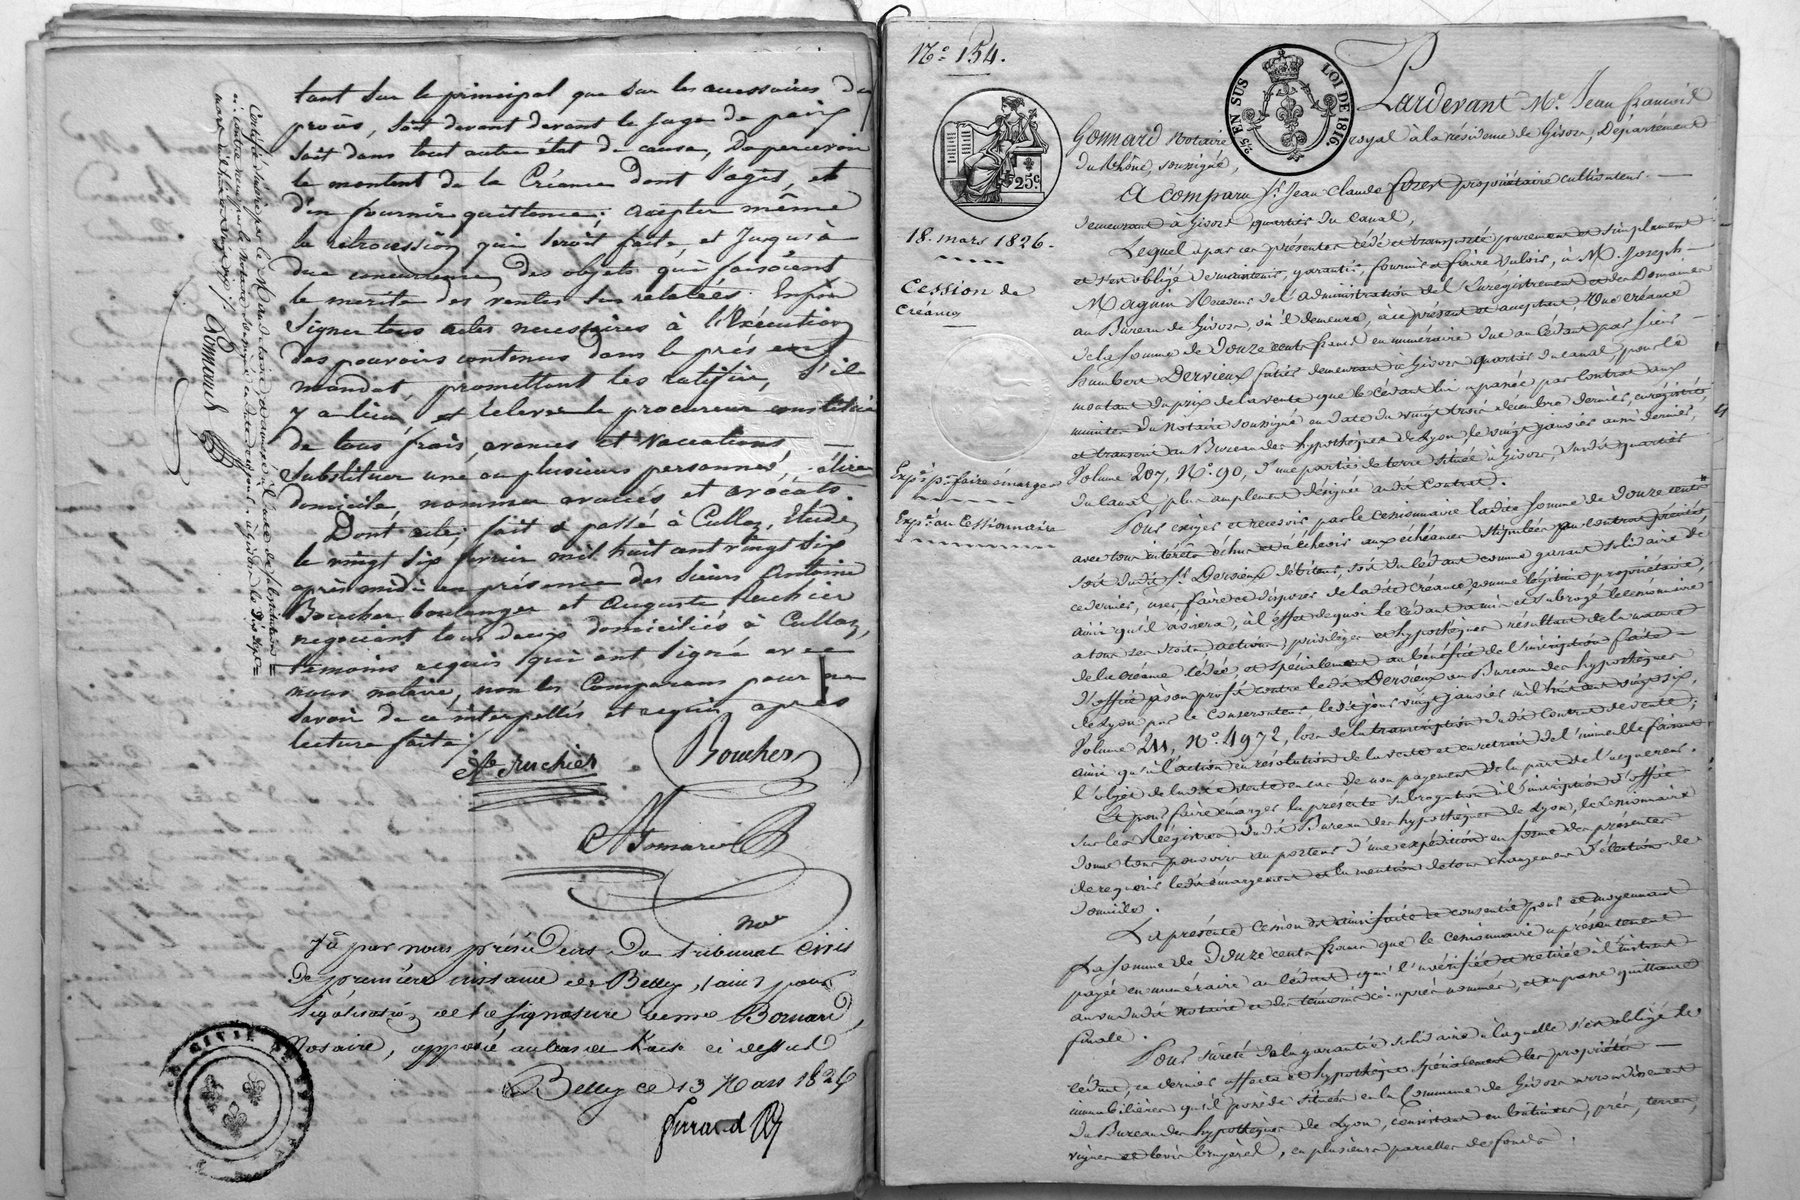 tant sur le principal que sur les accessoires du
procès, soit devant devant le juge de paix
soit dans tout autre état de cause, De percevoir
le montant de la Créance dont s'agit, et
d'en fournir quittance; accepter même
la rétrocession qui seroit faite, et jusqu'à
due concurrence, des objets qui faisoient
le merite des ventes sus relatées. Enfin
signer tous actes necessaires à l'Exécution
des pouvoirs contenus dans le présent
mandat, promettant les ratifier, s'il
y a lieu, et relever le procureur constitué
de tous frais, avances et vaccations,
substituer une ou plusieurs personnes, élire
domicile, nommer avoués et avocats.
Dont acte, fait et passé à Culloz, Etude,
le vingt six fevrier mil huit cent vingt six
après midi en présence des sieurs Antoine
Boucher boulanger et Auguste Ruchier
negociant tous deux domiciliés à Culloz,
témoins requis qui ont signé avec
nous notaire, non les Comparans pour ne
savoir de ce interpellés et requis, après
lecture faite.
Ate Ruchier Boucher
nore
Vû par nous président du tribunal civil
De première instance de Belley, pour
légalisation de la signature de me Bornard,
Notaire, apposée au bas de l'acte ci dessus
Belley ce 13 Mars 1826
Girrard
CIVIL DE
No. 154.
25c.
2,5 EN SUS LOI DE 1816.
18. mars 1826.
Cession de
Créance
Expé. p. faire émarger
Expé. au Cessionnaire
Pardevant Me. Jean françois
Gonnard Notaire royal à la résidence de Givors, Département
du Rhône, soussigné,
A comparu Sr. Jean Claude propriétaire cultivateur
demeurant à Givors quartier du Canal,
Lequel a par ces présentes cédé et transporté purement et simplement
et s'est obligé de maintenir, garantir, fournir et faire valoir, à M. Joseph
Magnin Receveur de l'Administration de l'Enrégistrement et des Domaines
au Bureau de Givors, où il demeure, à ce présent et acceptant, Une créance
de la somme de Douze cents francs en numéraire due au Cédant par sieur
humbert Dervieux demeurant à Givors quartier du Canal, pour le
montant du prix de la vente que le Cédant lui a passée par Contrat aux
minutes du Notaire soussigné en date du vingt trois décembre dernier, enrégistré,
et transcrit au Bureau des hypothèques de Lyon, le vingt janvier aussi dernier,
Volume 207, No. 90, d'une partie de terre située à Givors, susdit quartier
du Canal, plus amplement désignée audit Contrat.
Pour exiger et recevoir par le Cessionnaire ladite somme de Douze cents
avec tous intérêts échus et à échoir aux échéances stipulées au contrat précité
soit dudit Sr. Dervieux débiteur, soit du Cédant comme garant solidaire de
ce dernier, user, faire et disposer de ladite Créance comme légitime propriétaire,
ainsi qu'il avisera, à l'effet de quoi le Cédant a mis et subrogé le Cessionnaire
à tous ses droits, actions, privilèges et hypothèques résultant de la nature
de la Créance cédée, et spécialement au bénéfice de l'inscription faite
d'office à son profit contre ledit Dervieux au Bureau des hypothèques
de Lyon par le Conservateur ledit jour vingt janvier mil huit cent vingt six,
Volume 211, No. 4972, lors de la transcription dudit Contrat de vente;
ainsi qu'à l'action en résolution de la vente et en retrait de l'immeuble faisant
l'objet de ladite vente en cas de non payement de la part de l'acquereur.
Et pour faire émarger la présente subrogation à l'inscription d'office
sur les Régistres dudit Bureau des hypothèques de Lyon, le Cessionnaire
donne tous pouvoirs au porteur d'une expédition en forme des présentes
de requérir ledit émargement et la mention de tous changemens d'élection de
domicile.
La présente Cession est ainsi faite et consentie pour et moyennant
La Somme de Douze cents francs que le Cessionnaire a présentement
payée en numéraire au Cédant qui l'a vérifiée et retirée à l'instant
au vu dudit Notaire et des témoins ci-après nommés, et en passe quittance
finale.
Pour sûreté de la garantie solidaire à laquelle s'est obligé le
Cédant, ce dernier affecte et hypothèque spécialement les propriétés
immobilières qu'il possède situées en la Commune de Givors arrondissement
du Bureau des hypothèques de Lyon, consistant en bâtimens, prés, terres,
vignes et bois, en plusieurs parcelles de fonds.